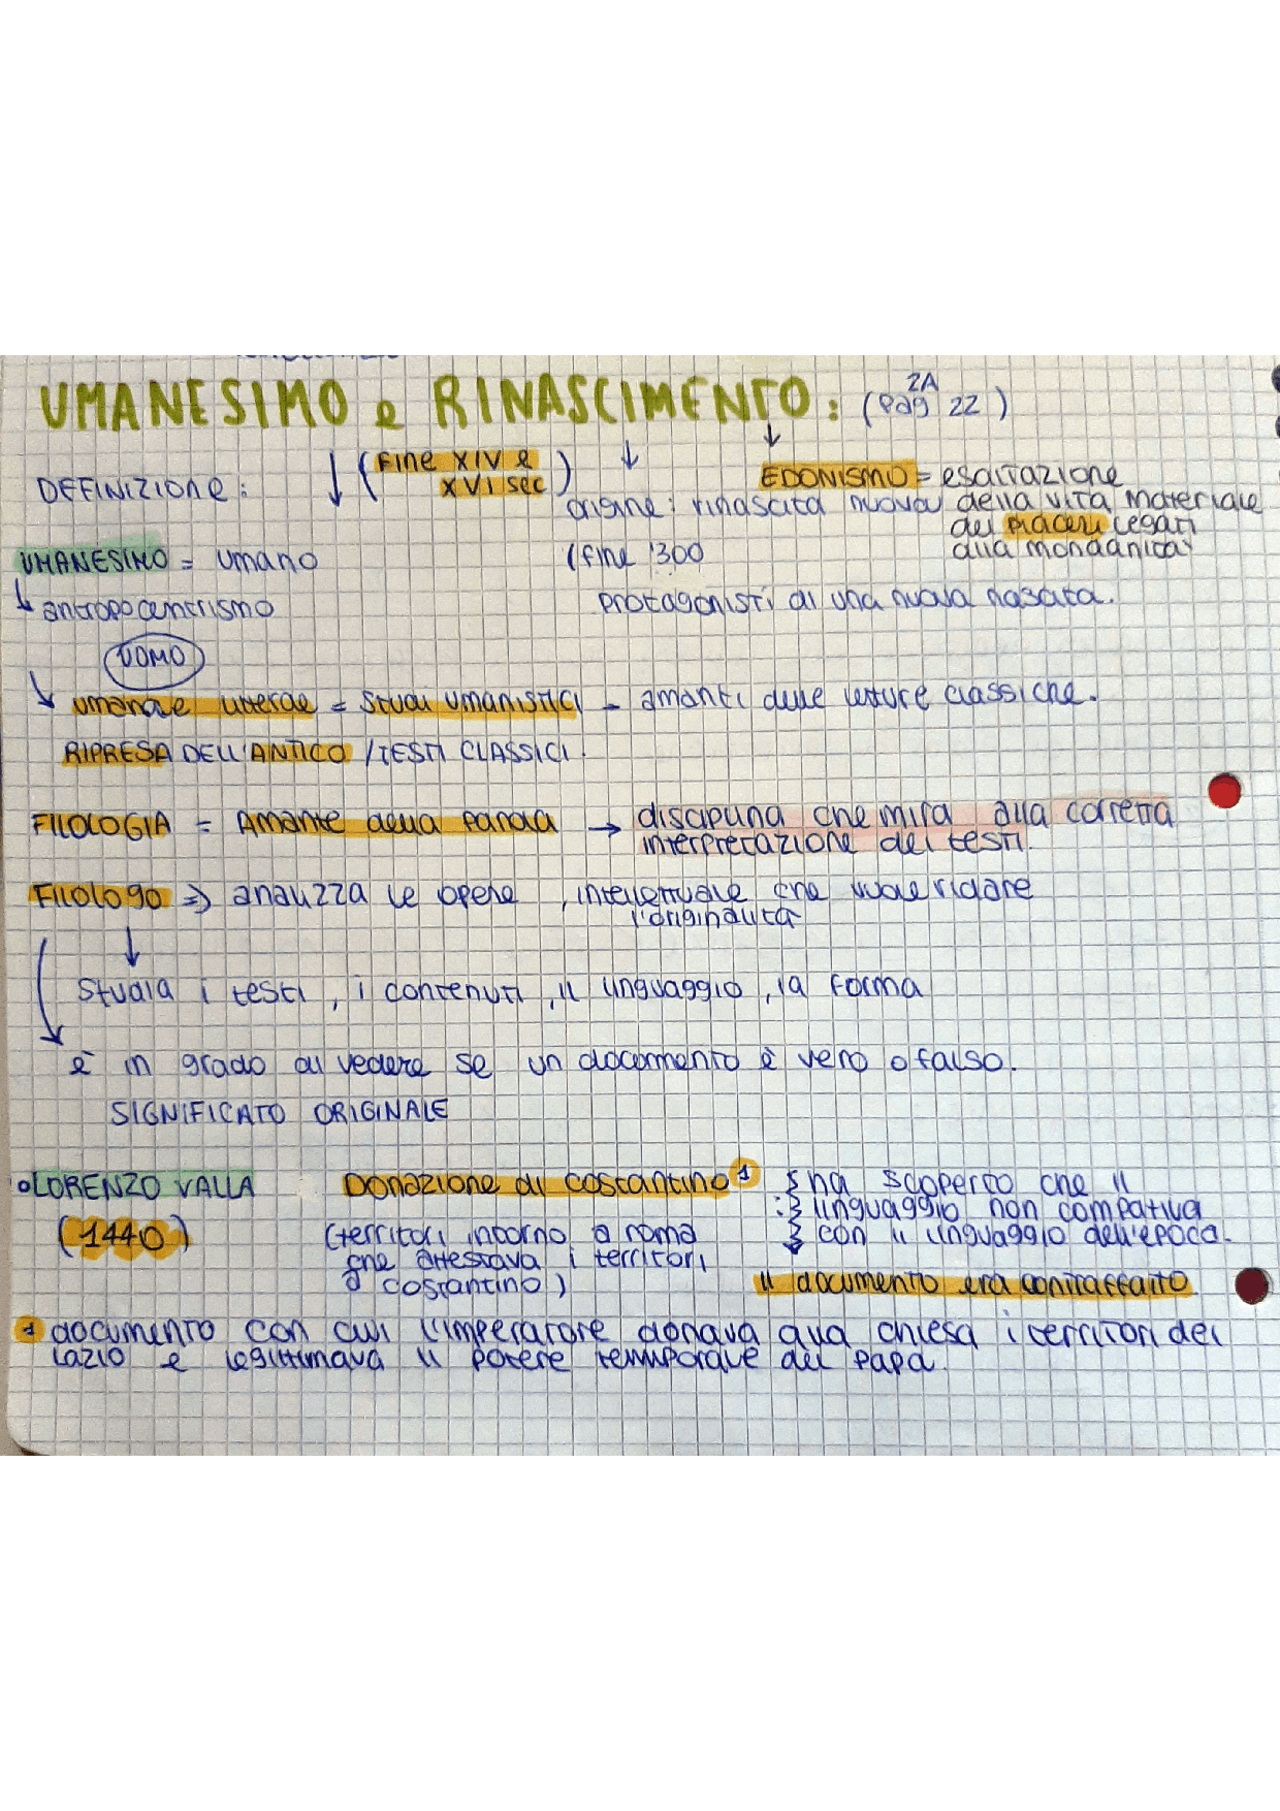 UMANESIMO e RINASCIMENTO: (pag 22)
2A
DEFINIZIONE: ↓ (FINE XIV e XVI SEC)
EDONISMO = esaltazione
origine: rinascita nuova della vita materiale
dei piaceri legati
alla mondanità
UMANESIMO = umano
(fine '300
↳ antropocentrismo
protagonisti di una nuova nascita.
UOMO
↘ umanae litterae = studi umanistici - amanti delle letture classiche.
RIPRESA DELL'ANTICO / TESTI CLASSICI.
FILOLOGIA = Amante della parola → disciplina che mira alla corretta
interpretazione dei testi.
Filologo => analizza le opere, intellettuale che vuole ridare
l'originalità
studia i testi, i contenuti, il linguaggio, la forma
è in grado di vedere se un documento è vero o falso.
SIGNIFICATO ORIGINALE
LORENZO VALLA
(1440)
Donazione di costantino 1
(territori intorno a roma
che attestava i territori
costantino)
ha scoperto che il
linguaggio non compativa
con il linguaggio dell'epoca.
il documento era contraffatto
1 documento con cui l'imperatore donava alla chiesa i territori del
Lazio e legittimava il potere temporale del papa.